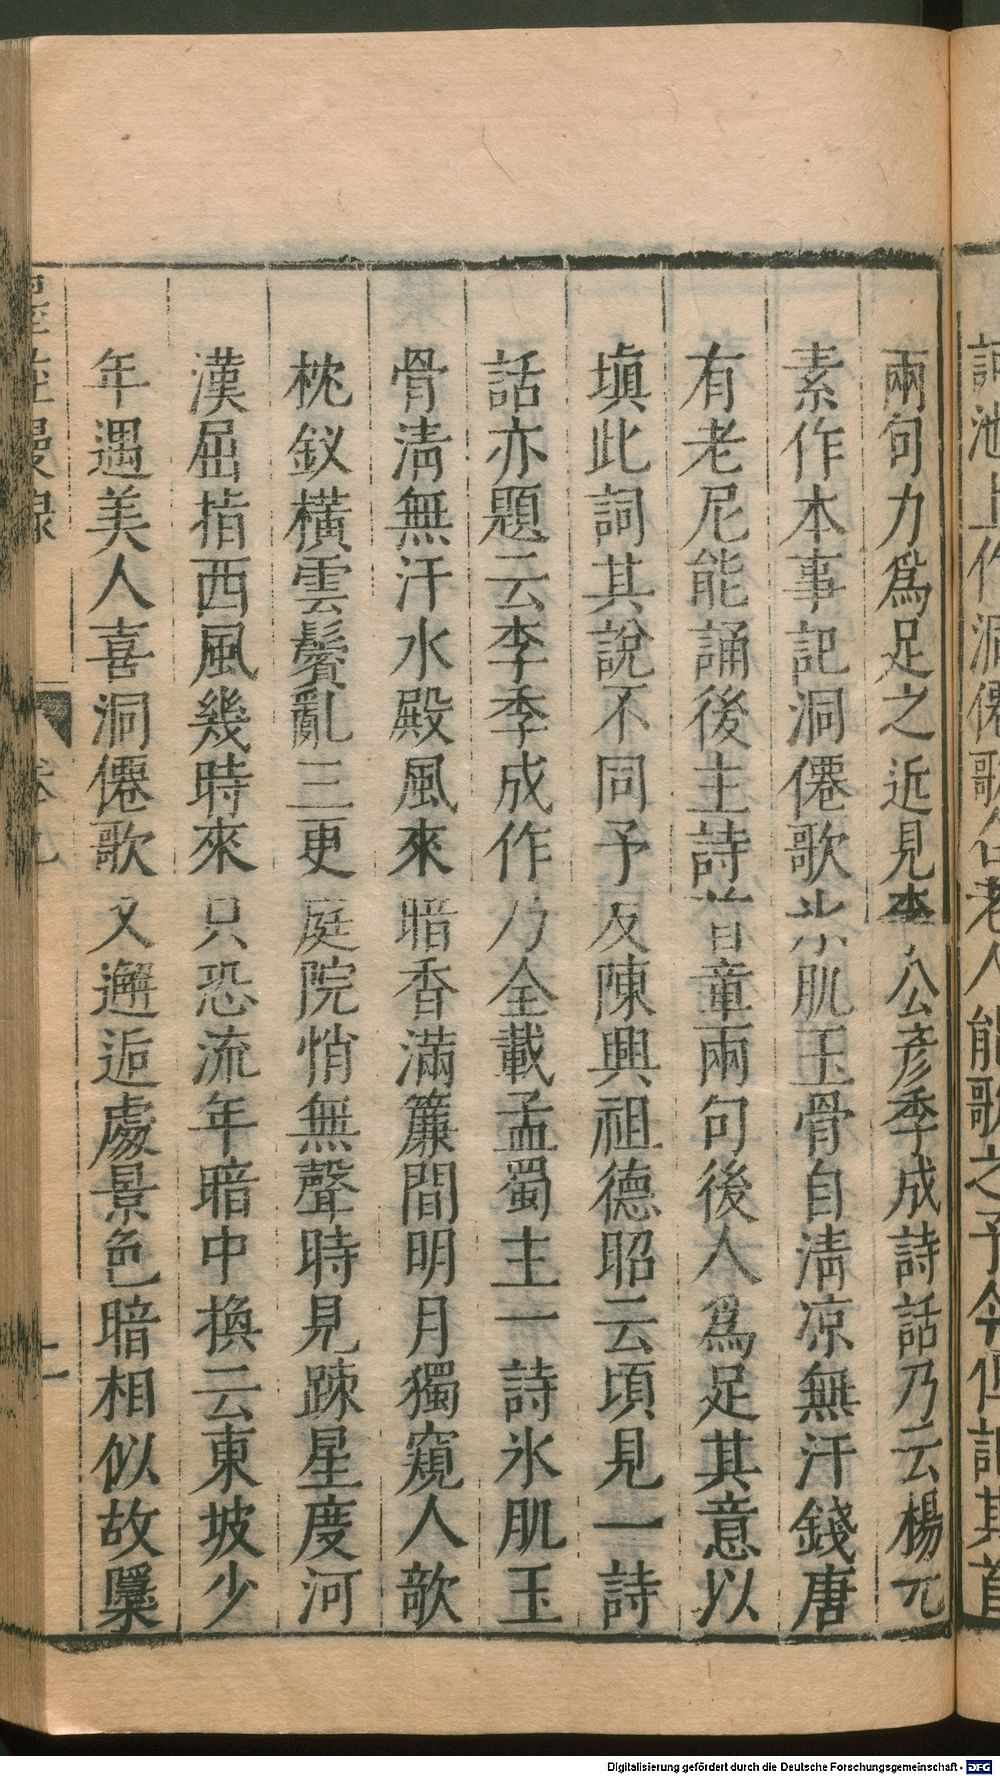 兩句力爲足之近見李公彥季成詩話乃云楊元
素作本事記洞僊歌氷肌玉骨自淸凉無汗錢唐
有老尼能誦後主詩首章兩句後人爲足其意以
塡此詞其說不同予友陳興祖德昭云頃見一詩
話亦題云李季成作乃全載孟蜀主一詩氷肌玉
骨淸無汗水殿風來暗香滿簾間明月獨窺人欹
枕釵橫雲鬢亂三更庭院悄無聲時見踈星度河
漢屈指西風幾時來只恐流年暗中換云東坡少
年遇美人喜洞僊歌又邂逅處景色暗相似故櫽
Digitalisierung gefördert durch die Deutsche Forschungsgemeinschaft - DFG